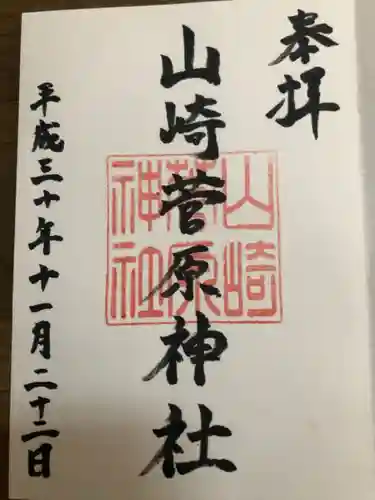 奉拝
山崎菅原神社
平成三十年十一月二十二日
山崎
菅原
神社